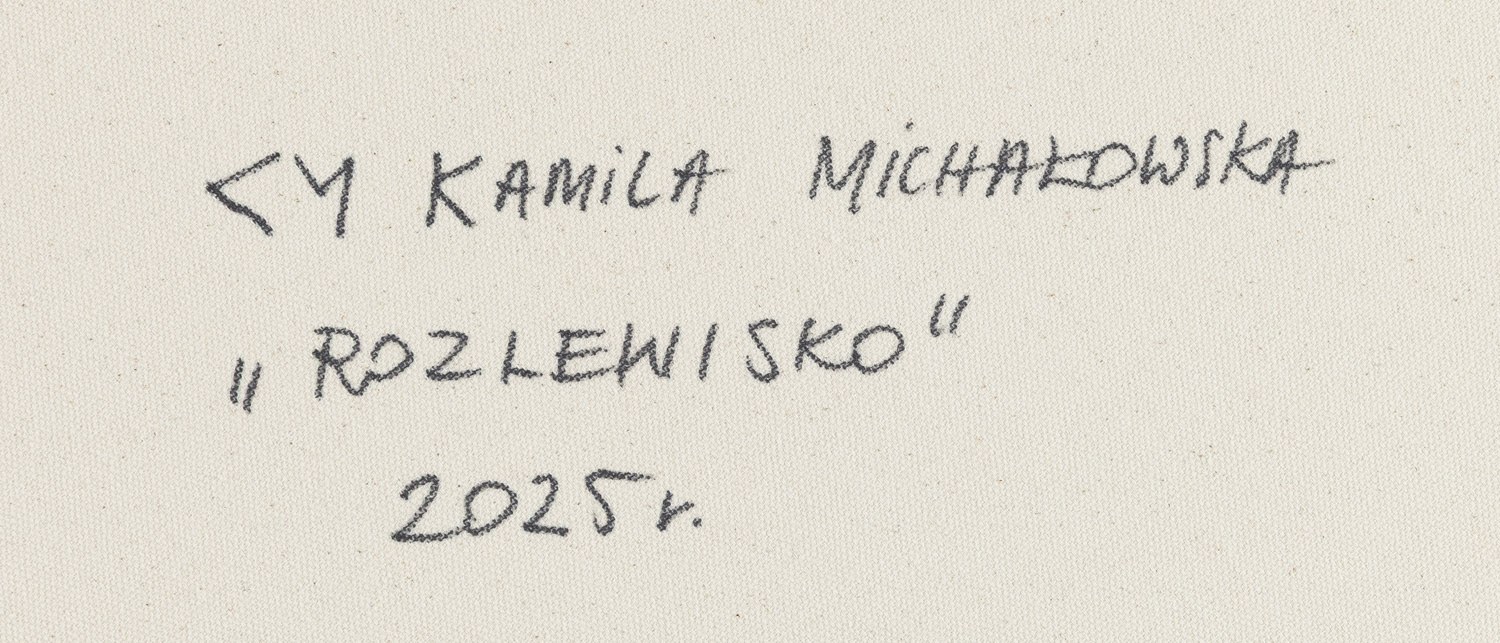 KAMILA MICHAŁOWSKA
„ROZLEWISKO"
2025r.